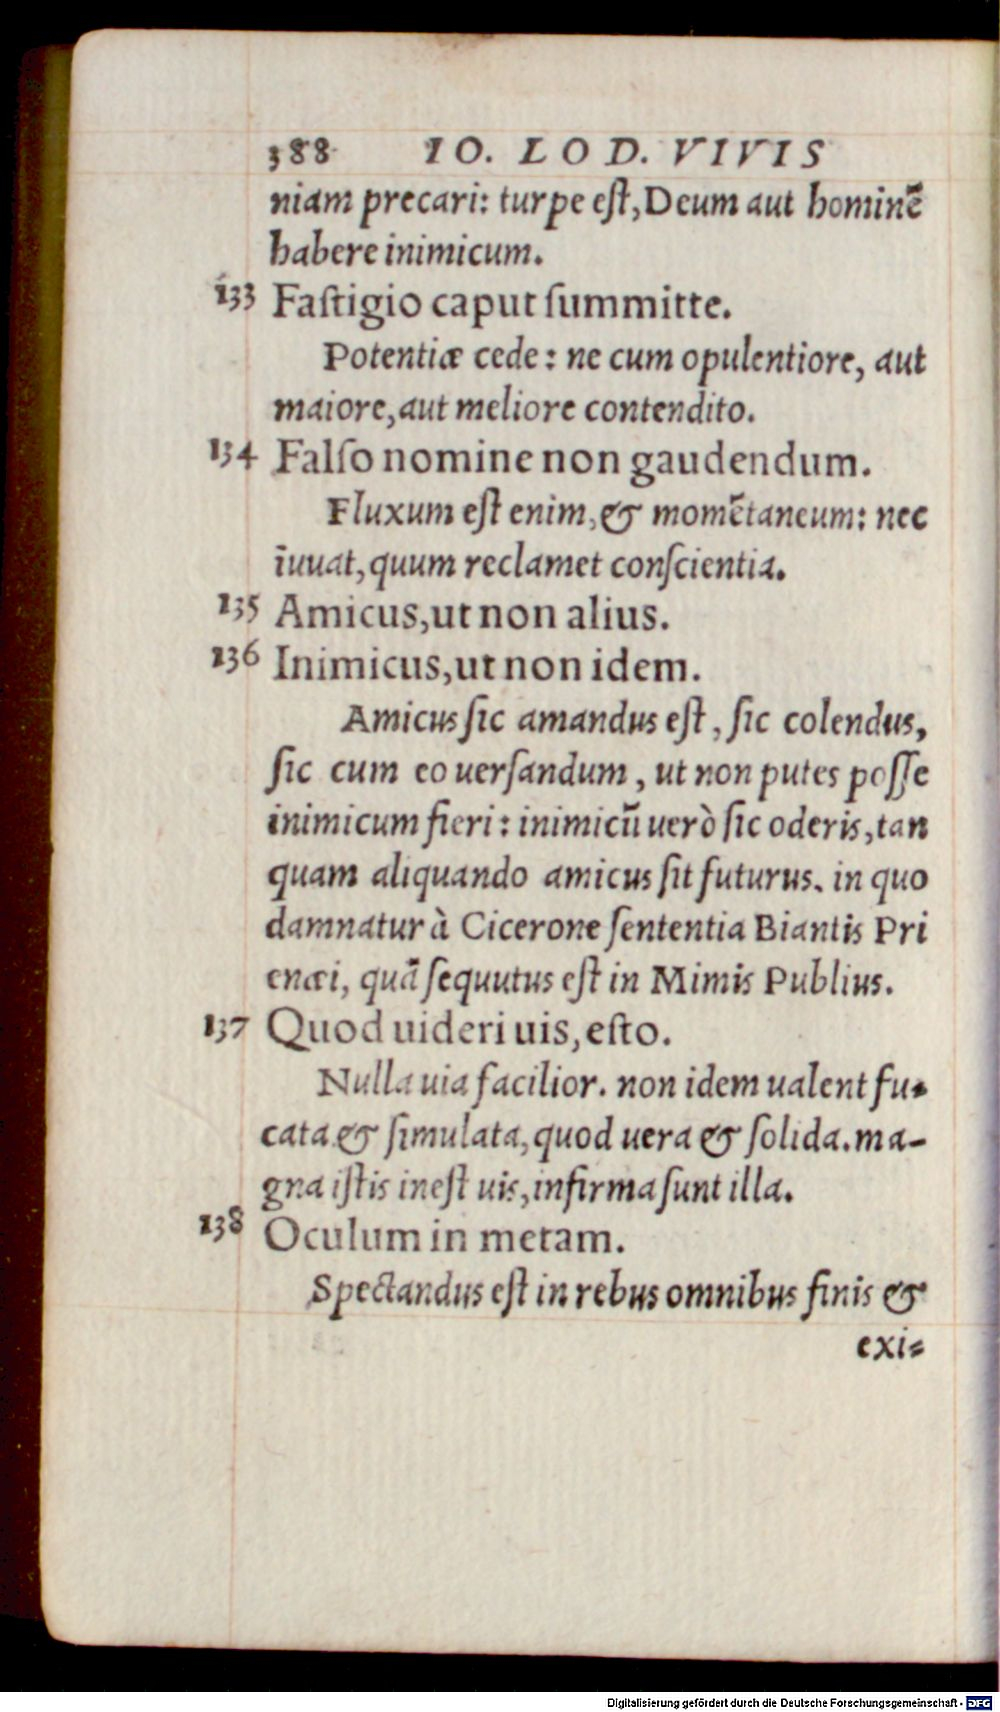 388 IO. LOD. VIVIS
niam precari: turpe eſt, Deum aut hominẽ
habere inimicum.
133 Faſtigio caput ſummitte.
Potentiæ cede: ne cum opulentiore, aut
maiore, aut meliore contendito.
134 Falſo nomine non gaudendum.
Fluxum eſt enim, & momẽtaneum: nec
iuuat, quum reclamet conſcientia.
135 Amicus, ut non alius.
136 Inimicus, ut non idem.
Amicus ſic amandus eſt, ſic colendus,
ſic cum eo uerſandum, ut non putes poſſe
inimicum fieri: inimicũ uerò ſic oderis, tan
quam aliquando amicus ſit futurus. in quo
damnatur à Cicerone ſententia Biantis Pri
enæi, quã ſequutus eſt in Mimis Publius.
137 Quod uideri uis, eſto.
Nulla uia facilior. non idem ualent fu-
cata & ſimulata, quod uera & ſolida. ma-
gna iſtis ineſt uis, infirma ſunt illa.
138 Oculum in metam.
Spectandus eſt in rebus omnibus finis &
exi-
Digitalisierung gefördert durch die Deutsche Forschungsgemeinschaft - DFG